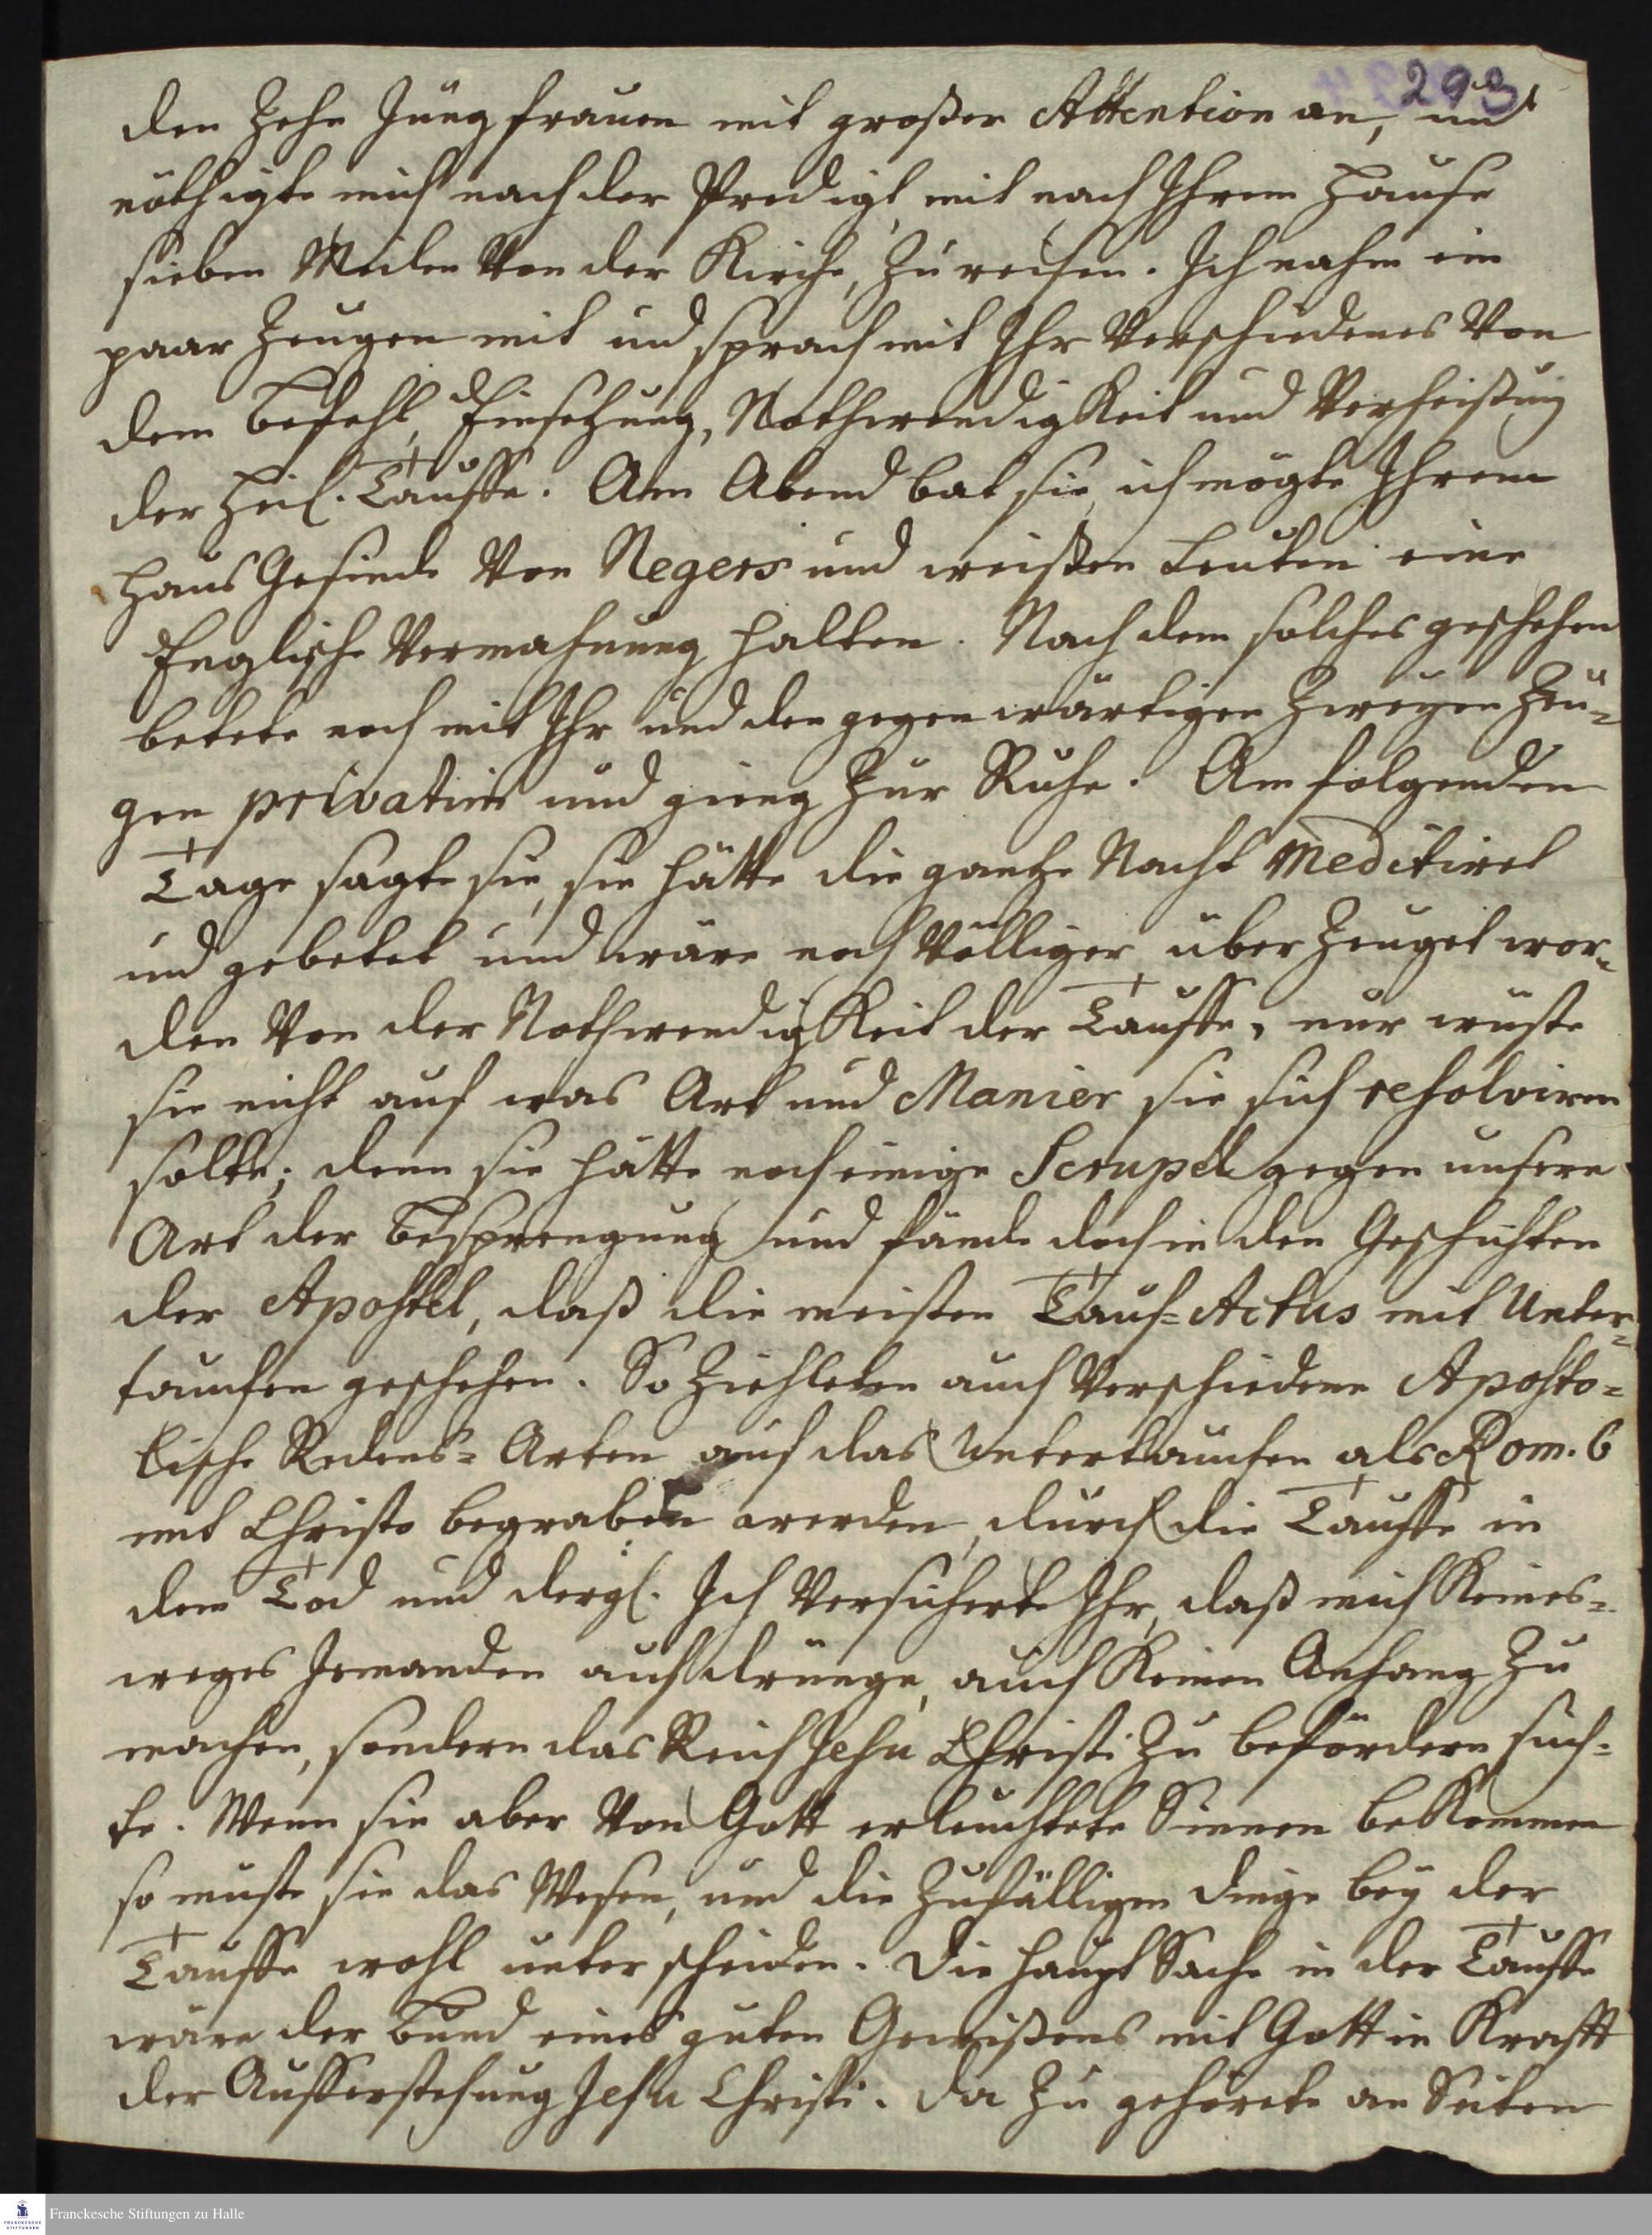 293
den Zehn Jungfrauen mit großer Attention an, und
nöthigte mich nach der Predigt mit nach Ihrem Hause
sieben Meilen von der Kirche, zu reisen. Ich nahm ein
paar Zeugen mit und sprach mit Ihr verschiedenes von
dem Befehl, Einsetzung, Nothwendigkeit und Verheißung
der Heil. Tauffe. Am Abend bat sie, ich mögte Ihrem
Haus Gesinde von Negers und weißen Leuten eine
Englische Vermahnung halten. Nach dem solches geschehen
betete noch mit Ihr und den gegenwärtigen Zweyen Zeu-
gen privatim und gieng zur Ruhe. Am folgenden
Tage sagte sie, sie hätte die gantze Nacht meditiret
und gebetet und wäre noch völliger überzeuget wor-
den von der Nothwendigkeit der Tauffe, nur wüste
sie nicht auf was Art und Manier sie sich resolviren
solte; denn sie hätte noch einige Scrupel gegen unsere
Art der Besprengung und fände doch in den Geschichten
der Apostel, daß die meisten Tauf-Actus mit Unter-
tauchen geschehen. So Ziehleten auch verschiedene Aposto-
lische Redens-Arten auf das Untertauchen als Rom. 6
mit Christo begraben werden, durch die Tauffe in
den Tod und dergl. Ich versicherte Ihr, daß mich keines-
weges Jemanden aufdrünge, auch keinen Anhang zu
machen, sondern das Reich Jesu Christi zu befördern such-
te. Wenn sie aber von Gott erleuchtete Sinnen bekommen
so müste sie das Wesen, und die Zufälligen Dinge bey der
Tauffe wohl unterscheiden. Die Haupt Sache in der Tauffe
wäre der Bund eines guten Gewißens mit Gott in Krafft
der Aufferstehung Jesu Christi. Da zu gehörete an Seiten
Franckesche Stiftungen zu Halle
FRANCKESCHE
STIFTUNGEN